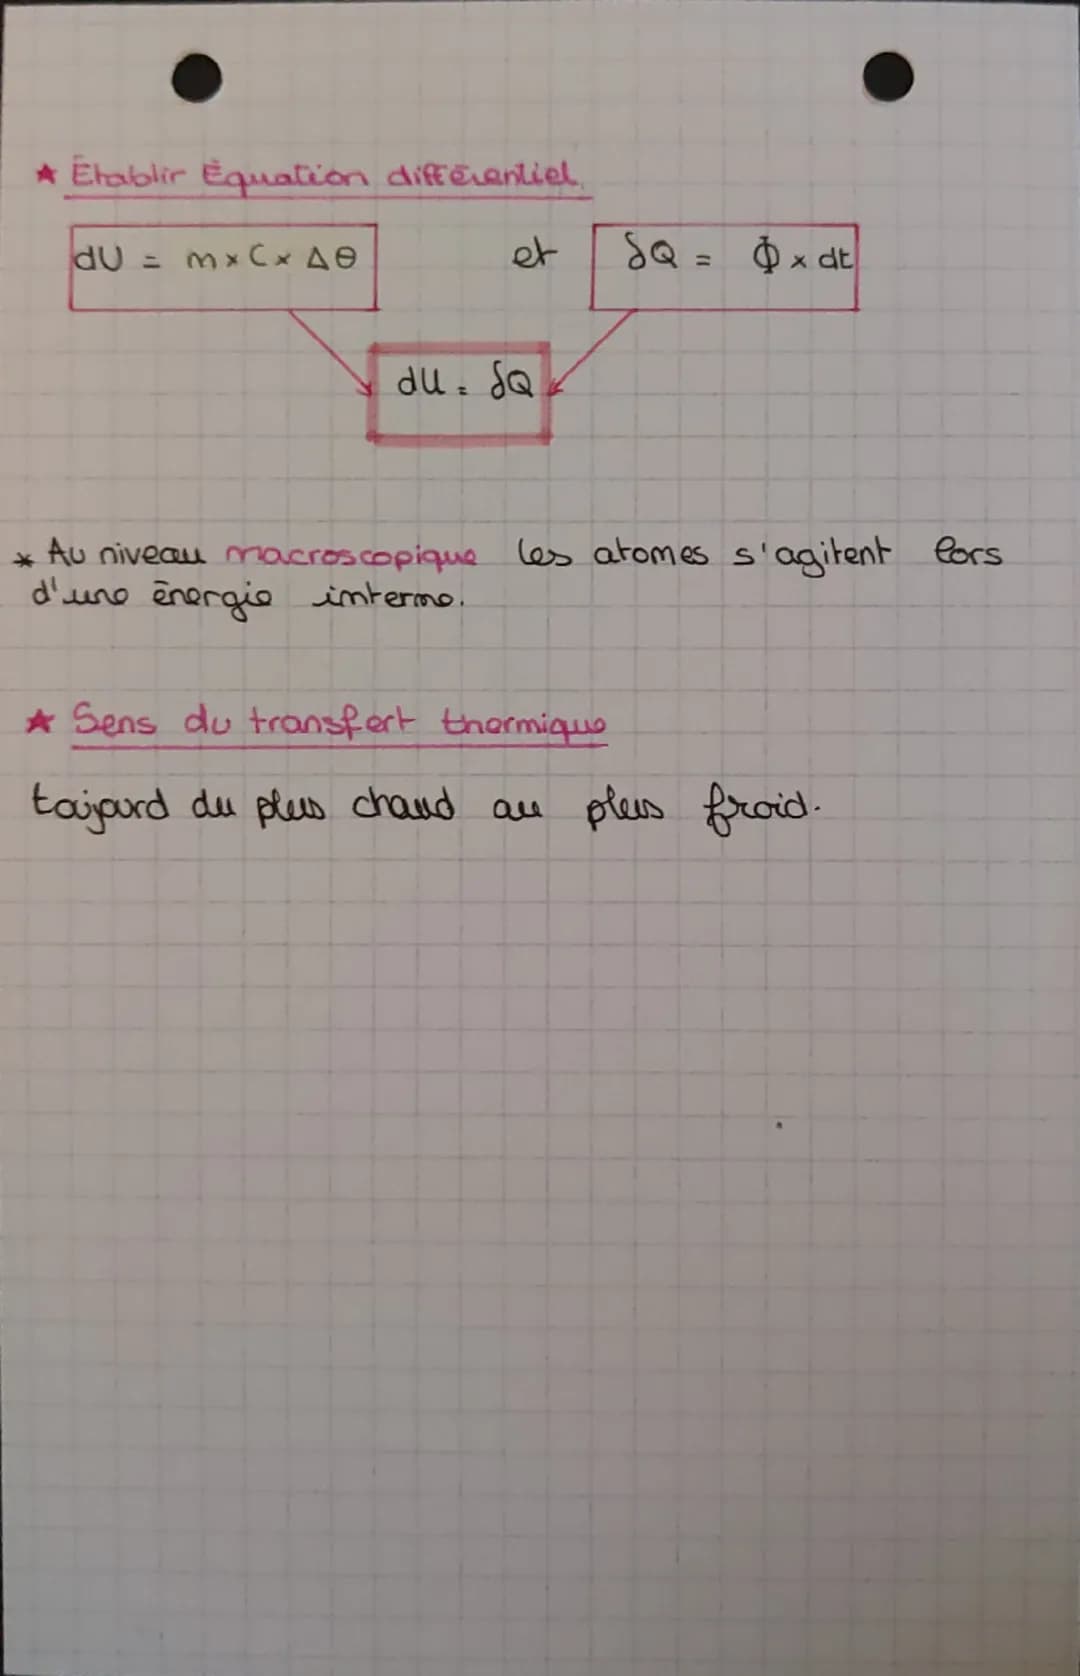 ★ Établir Équation différentiel.
dU = m × C × Δθ et δQ = Φ × dt
dU = δQ
* Au niveau macroscopique les atomes s'agitent lors
d'une énergie interne.
★ Sens du transfert thermique
toujourd du plus chaud au plus froid.